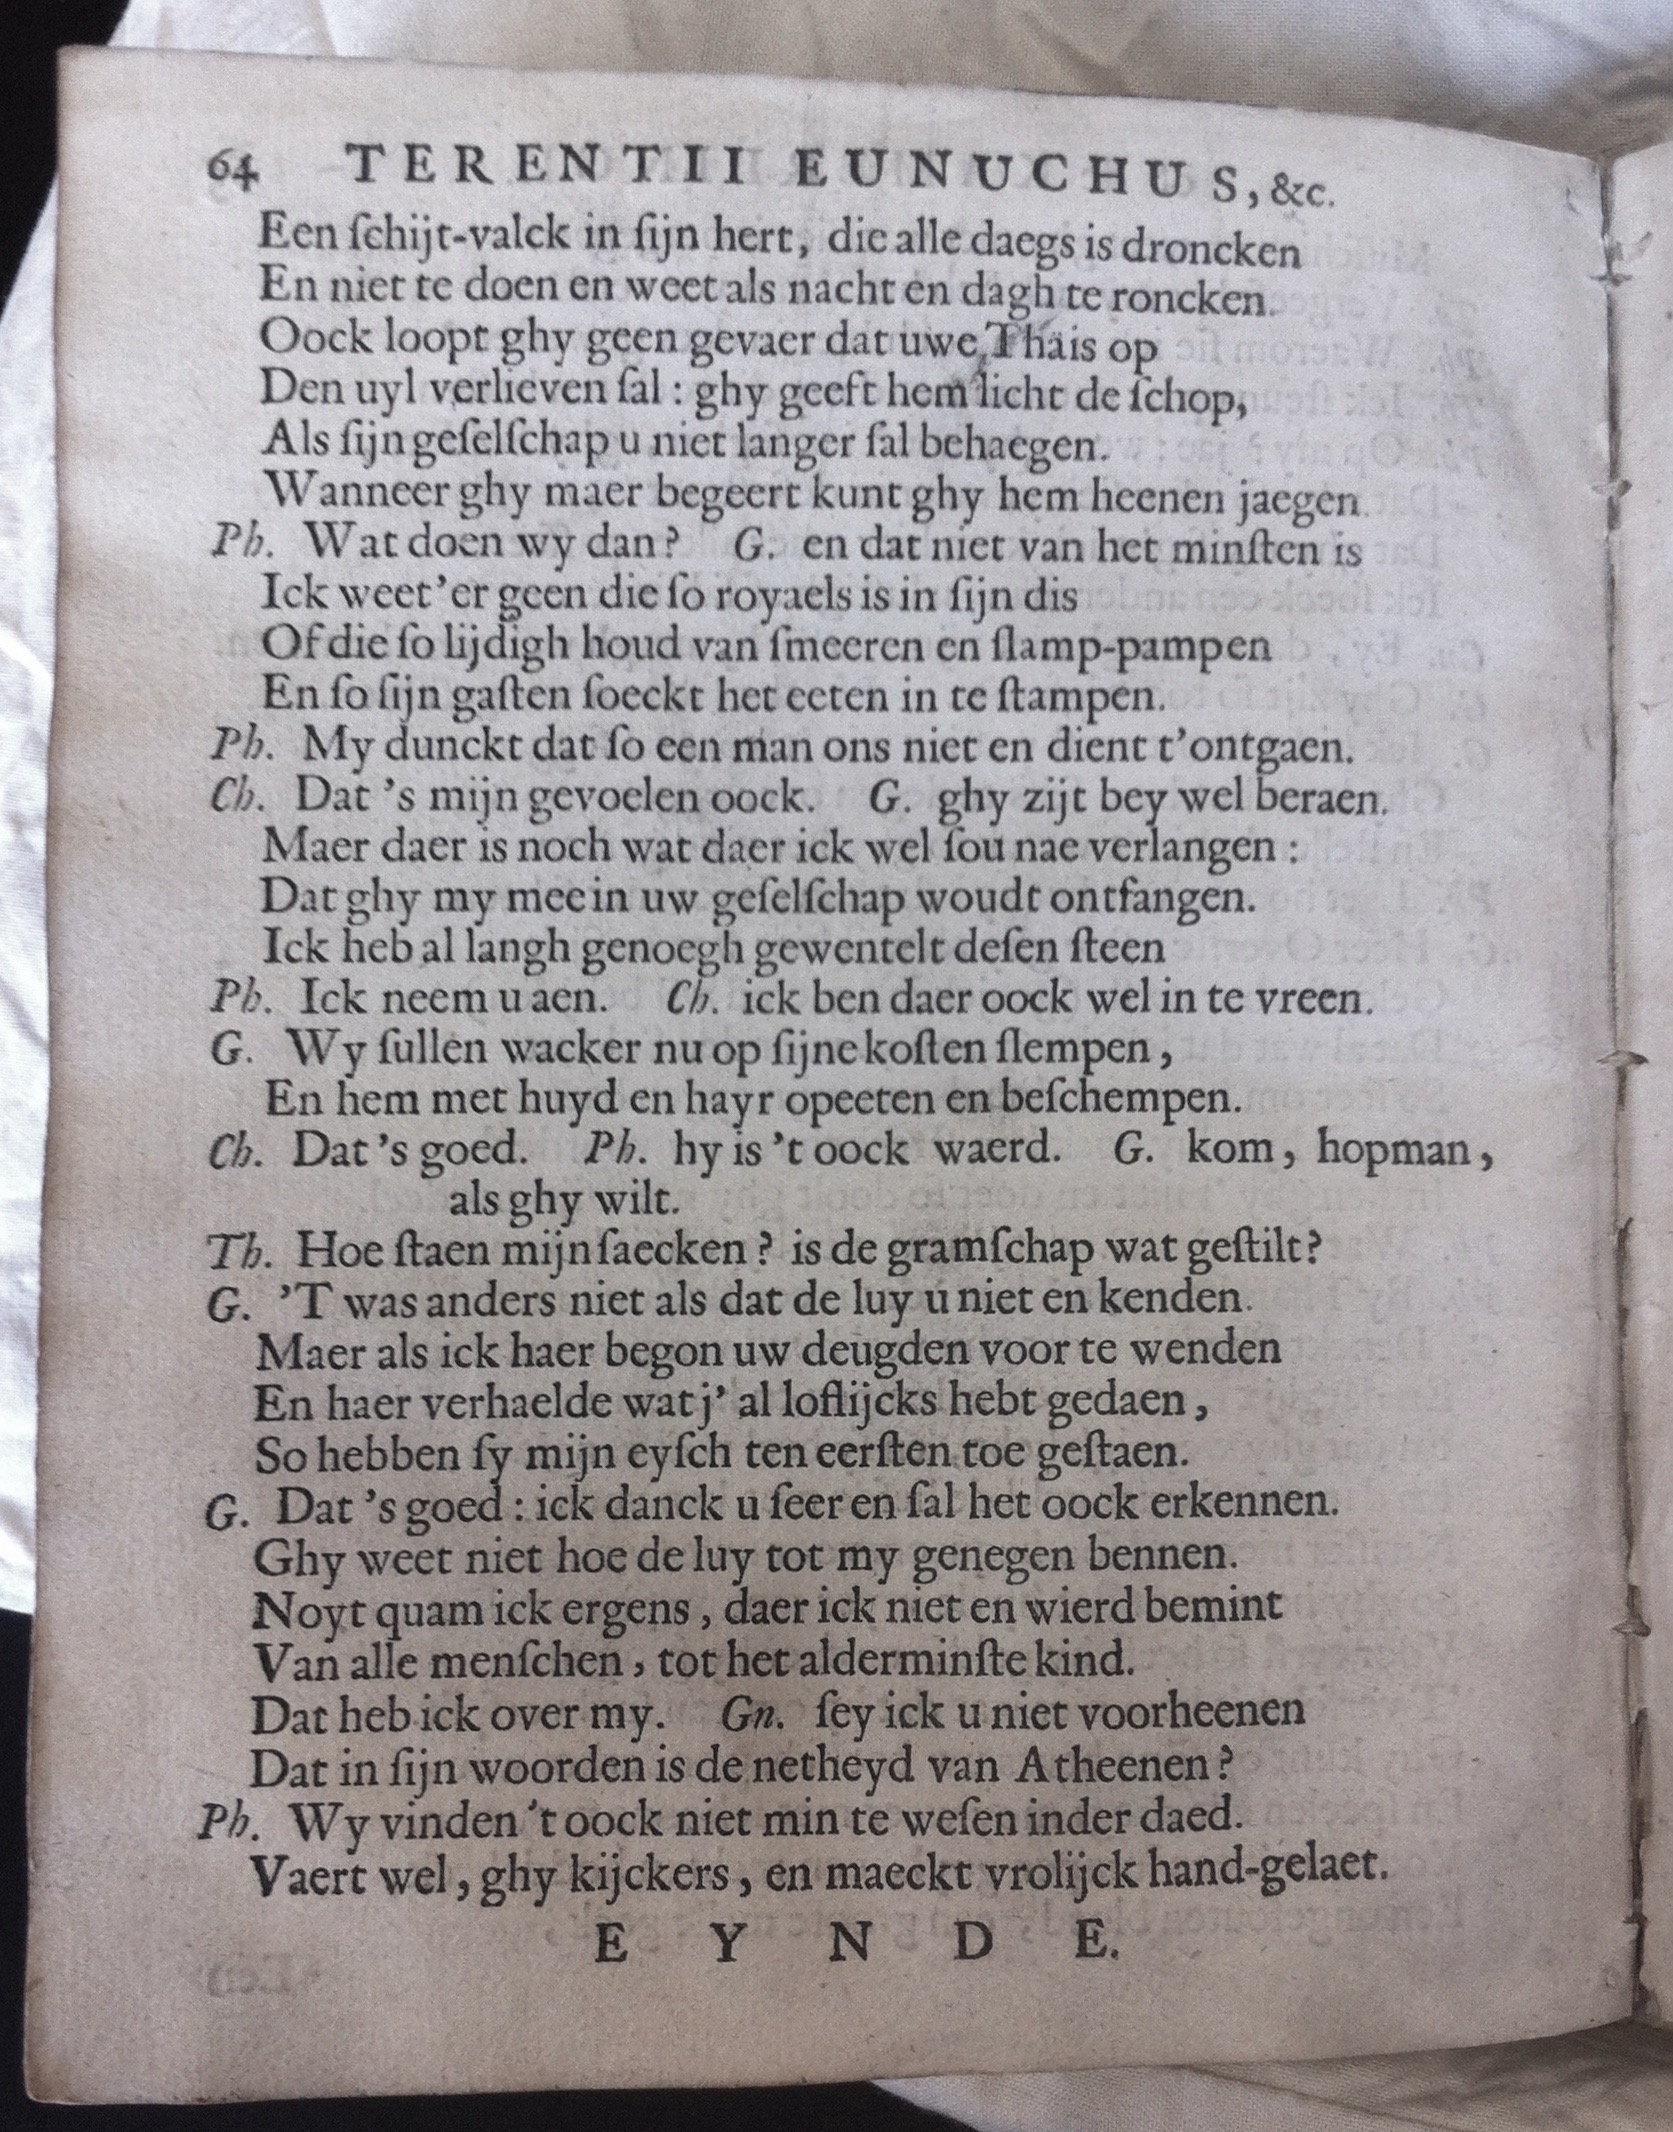 64 TERENTII EUNUCHUS, &c.
Een ſchijt-valck in ſijn hert, die alle daegs is droncken
En niet te doen en weet als nacht en dagh te roncken.
Oock loopt ghy geen gevaer dat uwe Thais op
Den uyl verlieven ſal : ghy geeft hem licht de ſchop,
Als ſijn geſelſchap u niet langer ſal behaegen.
Wanneer ghy maer begeert kunt ghy hem heenen jaegen.
Ph. Wat doen wy dan? G. en dat niet van het minſten is
Ick weet'er geen die ſo royaels is in ſijn dis
Of die ſo lijdigh houd van ſmeeren en ſlamp-pampen
En ſo ſijn gaſten ſoeckt het eeten in te ſtampen.
Ph. My dunckt dat ſo een man ons niet en dient t'ontgaen.
Ch. Dat 's mijn gevoelen oock. G. ghy zijt bey wel beraen.
Maer daer is noch wat daer ick wel ſou nae verlangen :
Dat ghy my mee in uw geſelſchap woudt ontfangen.
Ick heb al langh genoegh gewentelt deſen ſteen
Ph. Ick neem u aen. Ch. ick ben daer oock wel in te vreen.
G. Wy ſullen wacker nu op ſijne koſten ſlempen,
En hem met huyd en hayr opeeten en beſchempen.
Ch. Dat 's goed. Ph. hy is 't oock waerd. G. kom, hopman,
als ghy wilt.
Th. Hoe ſtaen mijn ſaecken? is de gramſchap wat geſtilt?
G. 'T was anders niet als dat de luy u niet en kenden.
Maer als ick haer begon uw deugden voor te wenden
En haer verhaelde wat j' al loflijcks hebt gedaen,
So hebben ſy mijn eyſch ten eerſten toe geſtaen.
G. Dat 's goed : ick danck u ſeer en ſal het oock erkennen.
Ghy weet niet hoe de luy tot my genegen bennen.
Noyt quam ick ergens, daer ick niet en wierd bemint
Van alle menſchen, tot het alderminſte kind.
Dat heb ick over my. Gn. ſey ick u niet voorheenen
Dat in ſijn woorden is de netheyd van Atheenen?
Ph. Wy vinden 't oock niet min te weſen inder daed.
Vaert wel, ghy kijckers, en maeckt vrolijck hand-gelaet.
E Y N D E.